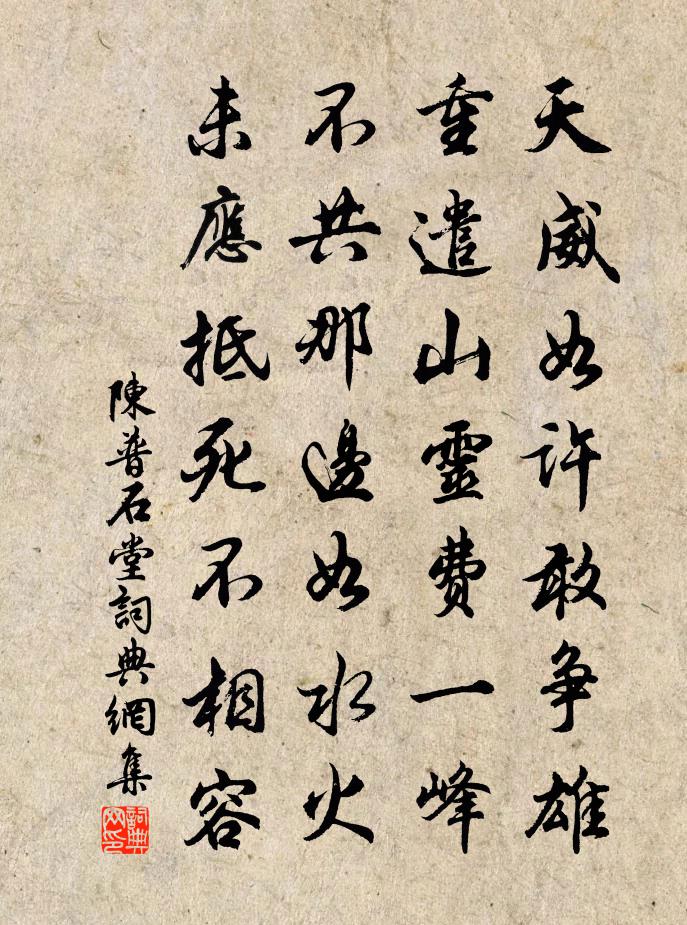 天威如許敢爭雄
重遣山靈費一峰
不共那邊如水火
未應抵死不相容
陳普石堂詞典網集
詞典網印